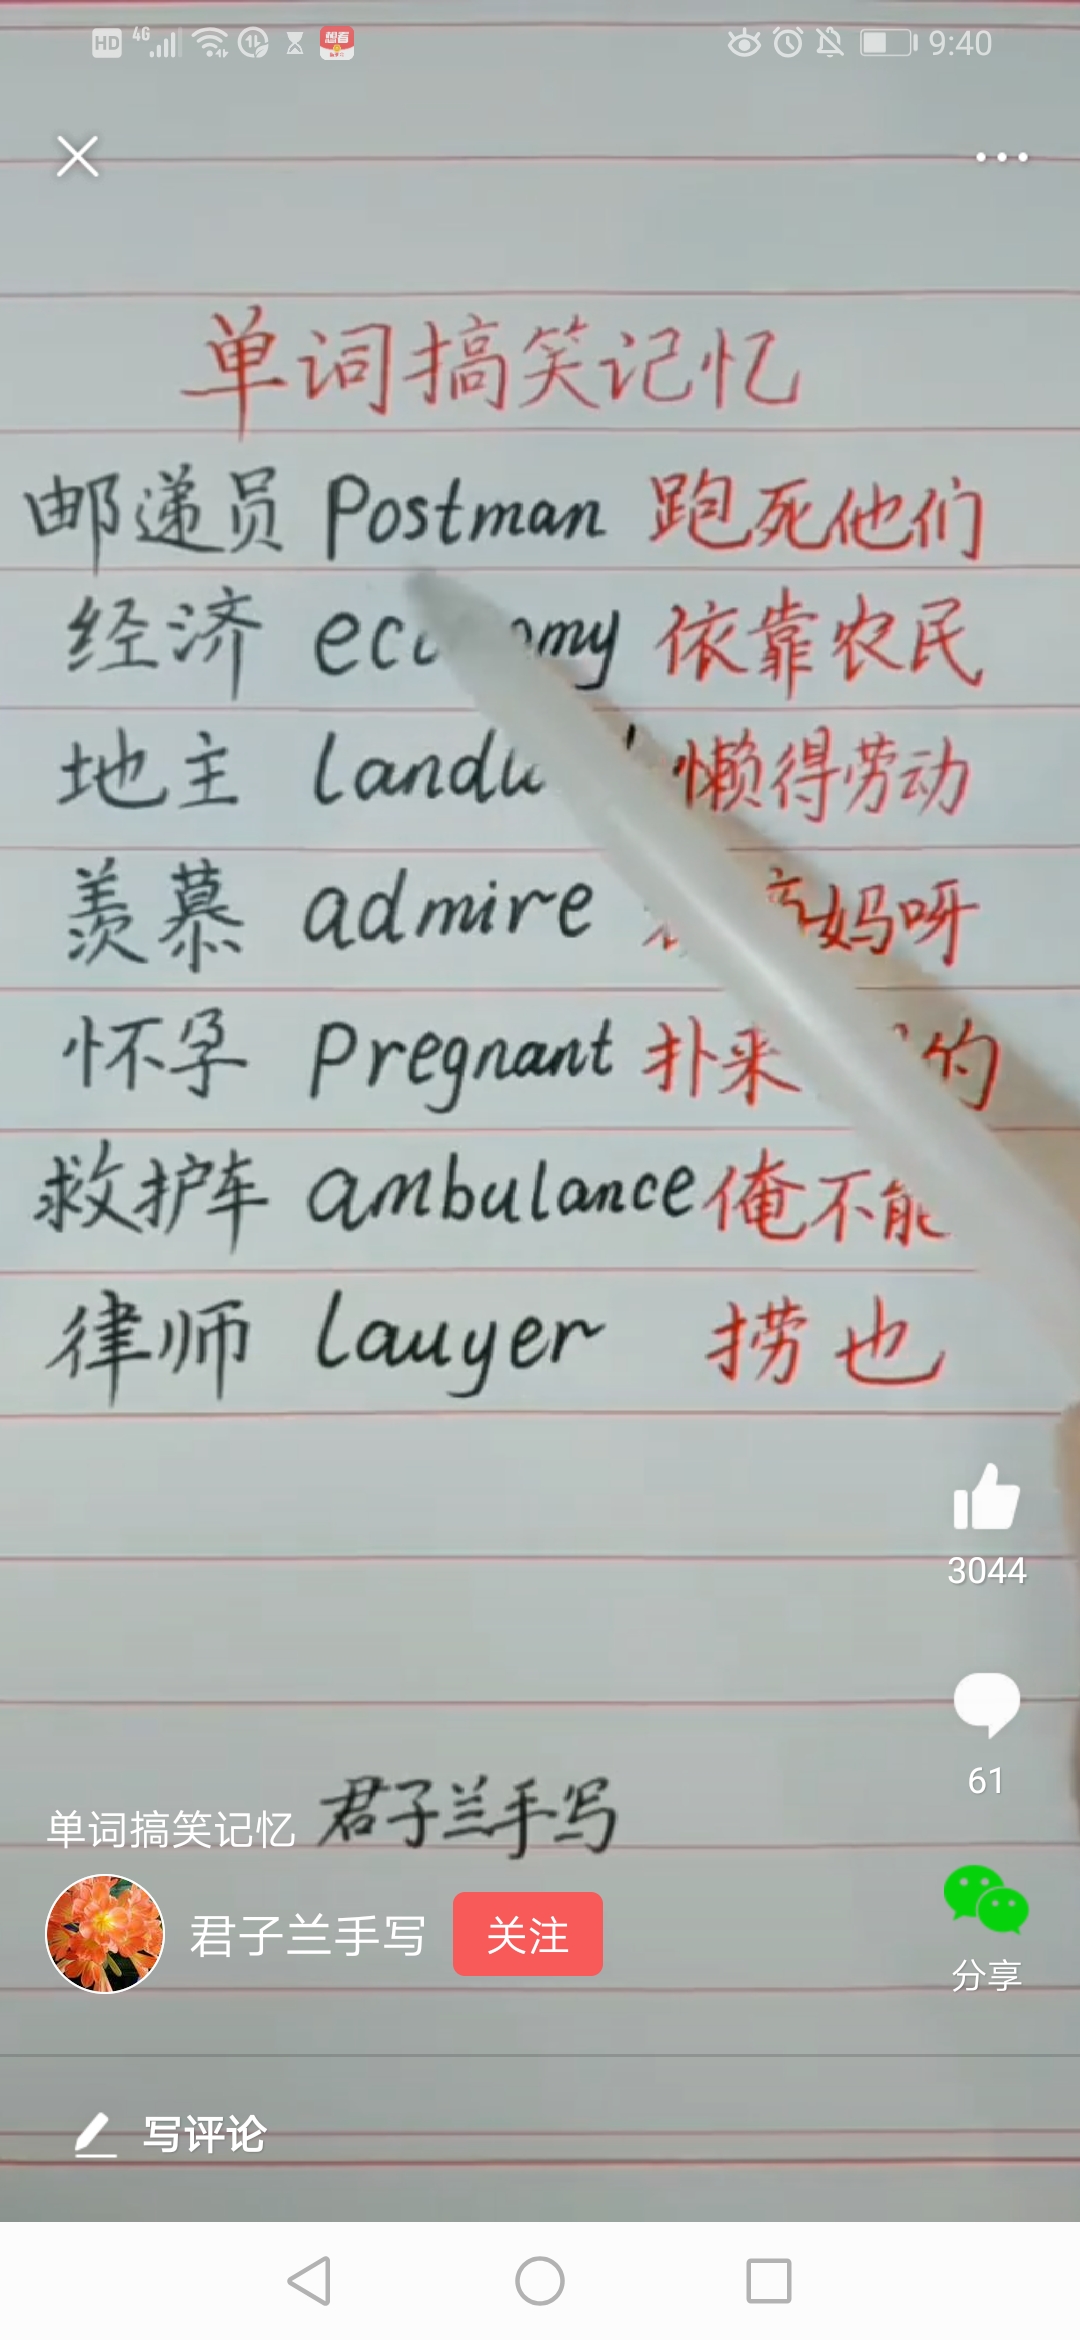 HD 4G 想看 9:40
单词搞笑记忆
邮递员 Postman 跑死他们
经济 依靠农民
地主 懒得劳动
羡慕 admire 妈呀
怀孕 Pregnant 扑来 的
救护车 ambulance 俺不能
律师 lauyer 捞也
3044
61
君子兰手写
单词搞笑记忆
君子兰手写 关注
分享
写评论